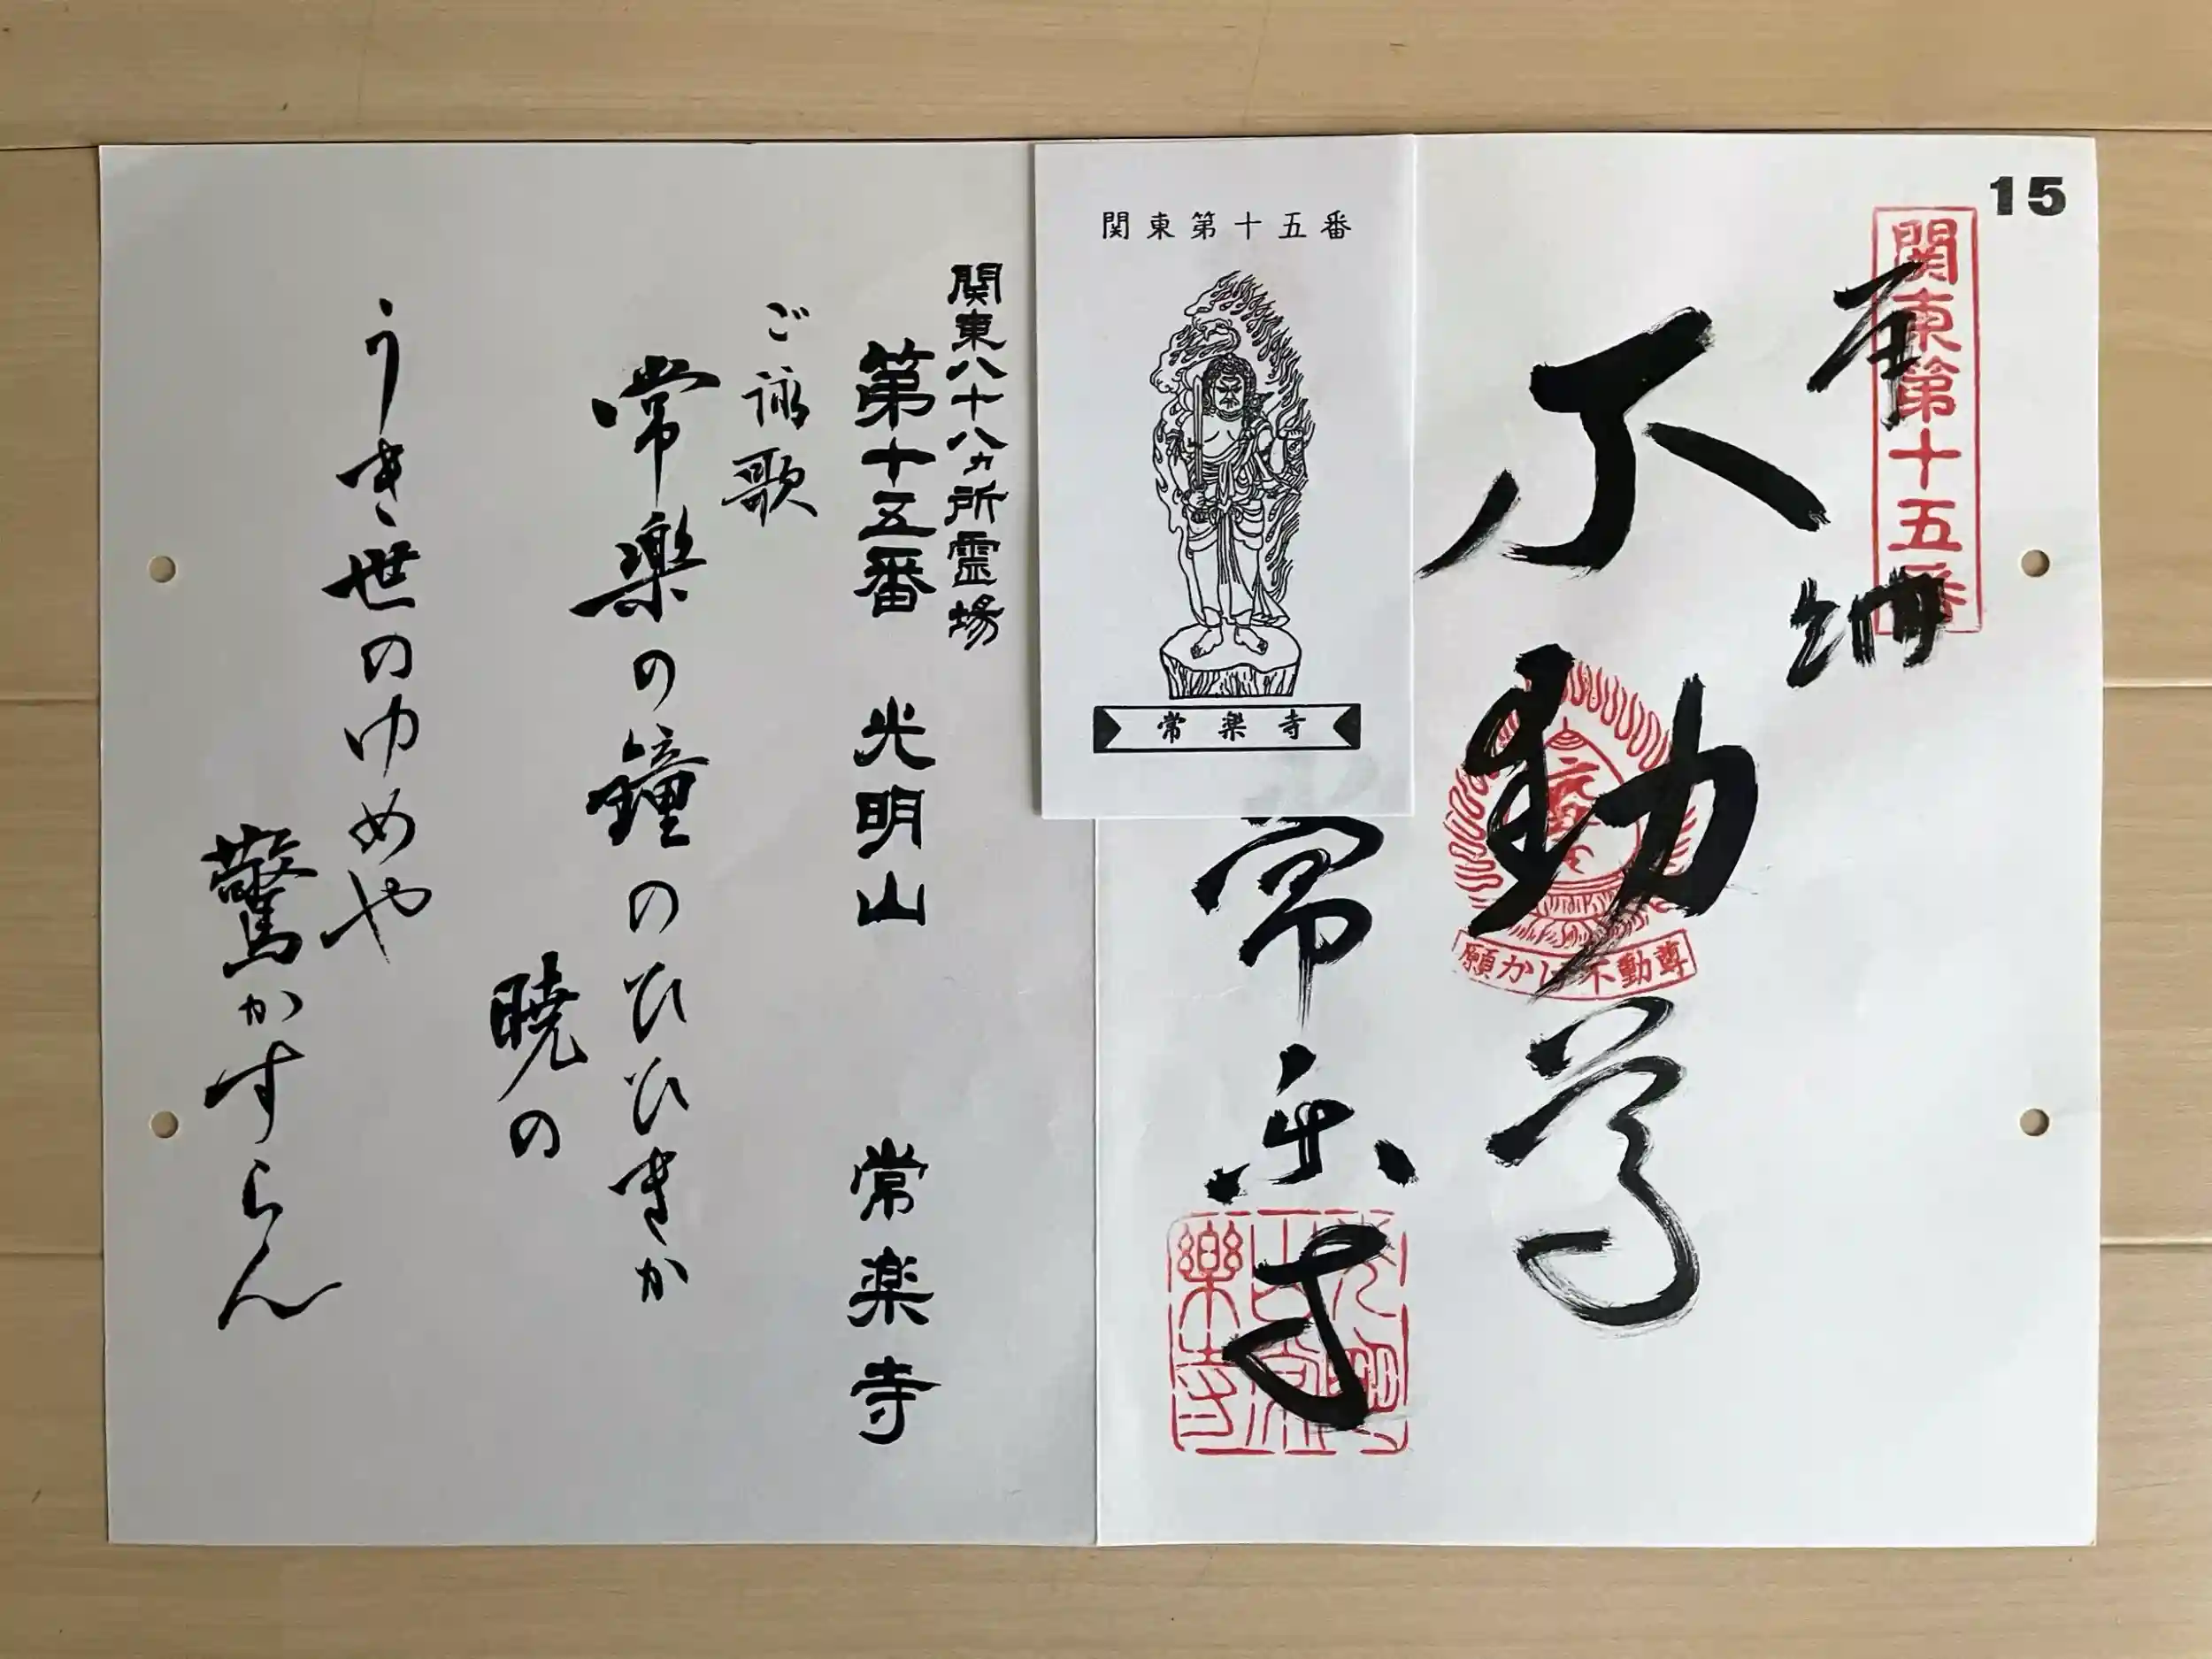 15
関東第十五番
奉拝
不動尊
願かけ不動尊
常楽寺
関東第十五番
常楽寺
関東八十八ヵ所霊場
第十五番 光明山 常楽寺
ご詠歌
常楽の鐘のひゞきか
暁の
うき世のゆめや
驚かすらん